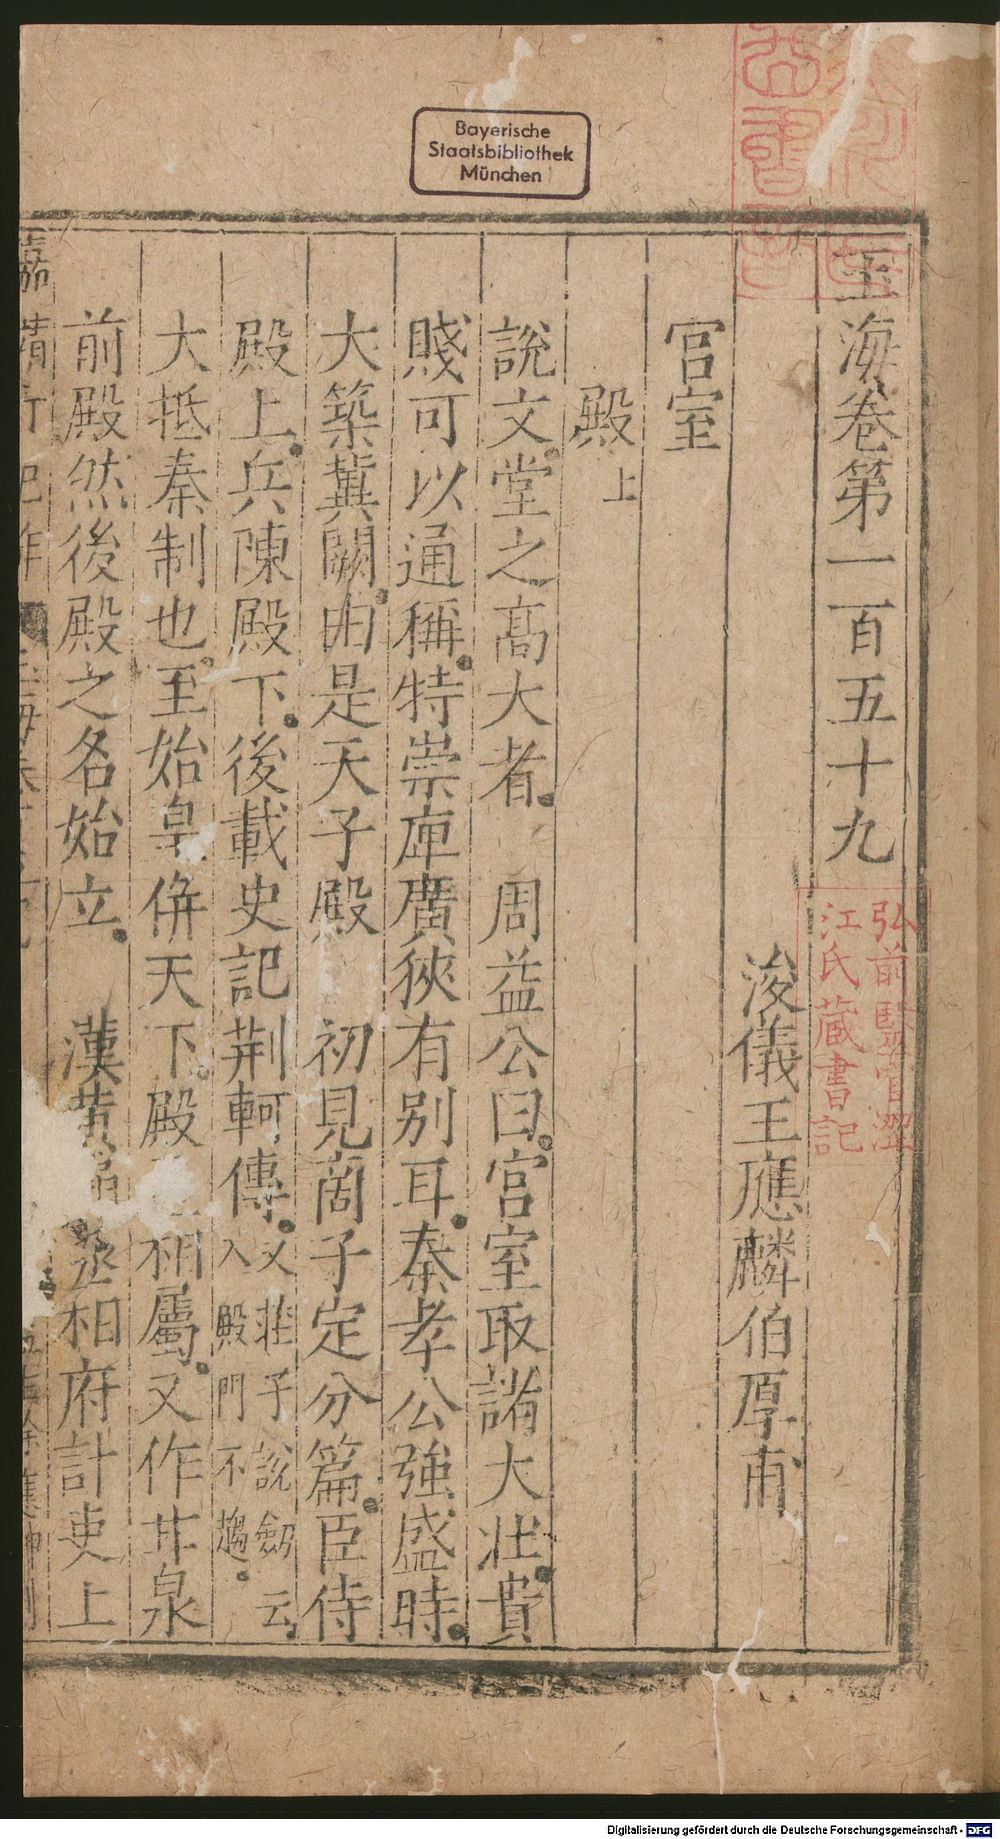 玉海卷第一百五十九
浚儀王應麟伯厚甫
宮室
殿上
說文堂之高大者 周益公曰宮室取諸大壯貴
賤可以通稱特崇庳廣狹有別耳秦孝公強盛時
大築冀闕由是天子殿 初見商子定分篇臣侍
殿上兵陳殿下後載史記荆軻傳又莊子說劒云入殿門不趨
大抵秦制也至始皇併天下殿 相屬又作甘泉
前殿然後殿之名始立 漢黃 丞相府計吏上
嘉靖 
弘前醫官澀
江氏藏書記
Bayerische
Staatsbibliothek
München
Digitalisierung gefördert durch die Deutsche Forschungsgemeinschaft - DFG